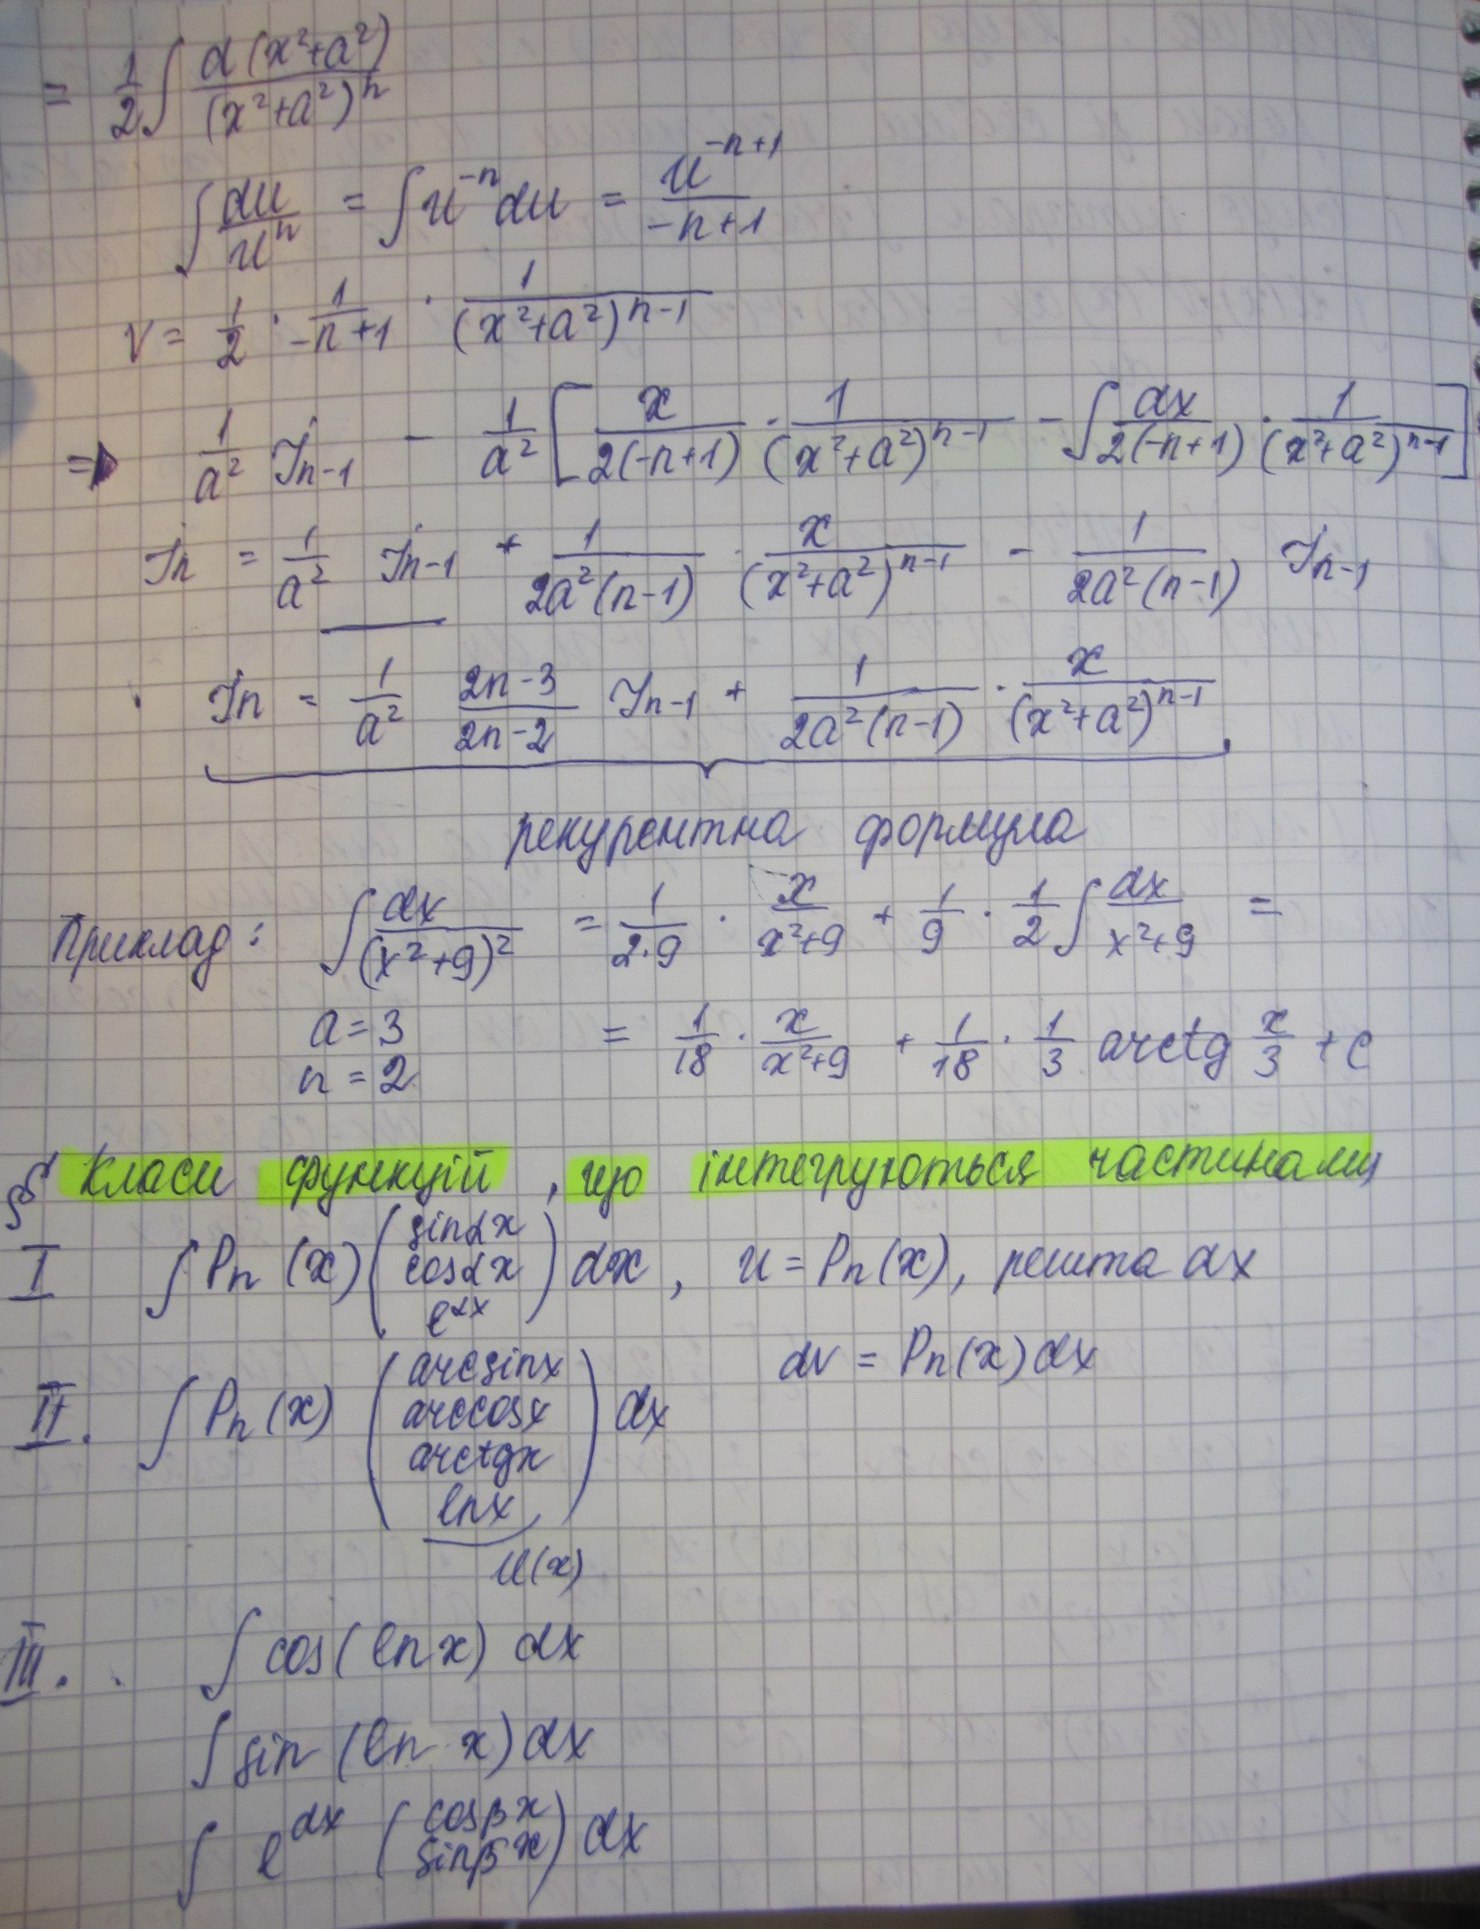 = 1/2 ∫ d(x²+a²)/(x²+a²)ⁿ
∫ du/uⁿ = ∫ u⁻ⁿ du = u⁻ⁿ⁺¹/(-n+1)
v = 1/2 · 1/(-n+1) · 1/(x²+a²)ⁿ⁻¹
⇒ 1/a² Jn-1 - 1/a² [ x/(2(-n+1)) · 1/(x²+a²)ⁿ⁻¹ - ∫ dx/(2(-n+1)) · 1/(x²+a²)ⁿ⁻¹ ]
Jn = 1/a² Jn-1 + 1/(2a²(n-1)) · x/(x²+a²)ⁿ⁻¹ - 1/(2a²(n-1)) Jn-1
Jn = 1/a² (2n-3)/(2n-2) Jn-1 + 1/(2a²(n-1)) · x/(x²+a²)ⁿ⁻¹,
рекурентна формула
Приклад: ∫ dx/(x²+9)² = 1/(2·9) · x/(x²+9) + 1/9 · 1/2 ∫ dx/(x²+9) =
a = 3
n = 2
= 1/18 · x/(x²+9) + 1/18 · 1/3 arctg x/3 + c
§ Класи функцій, що інтегруються частинами
I ∫ Pn(x) (sinαx
cosαx
e^αx) dx, u = Pn(x), решта dx
II. ∫ Pn(x) (arcsinx
arccosx
arctgx
lnx) dx
dv = Pn(x)dx
u(x)
III. ∫ cos(ln x) dx
∫ sin(ln x) dx
∫ e^αx (cosβx
sinβx) dx